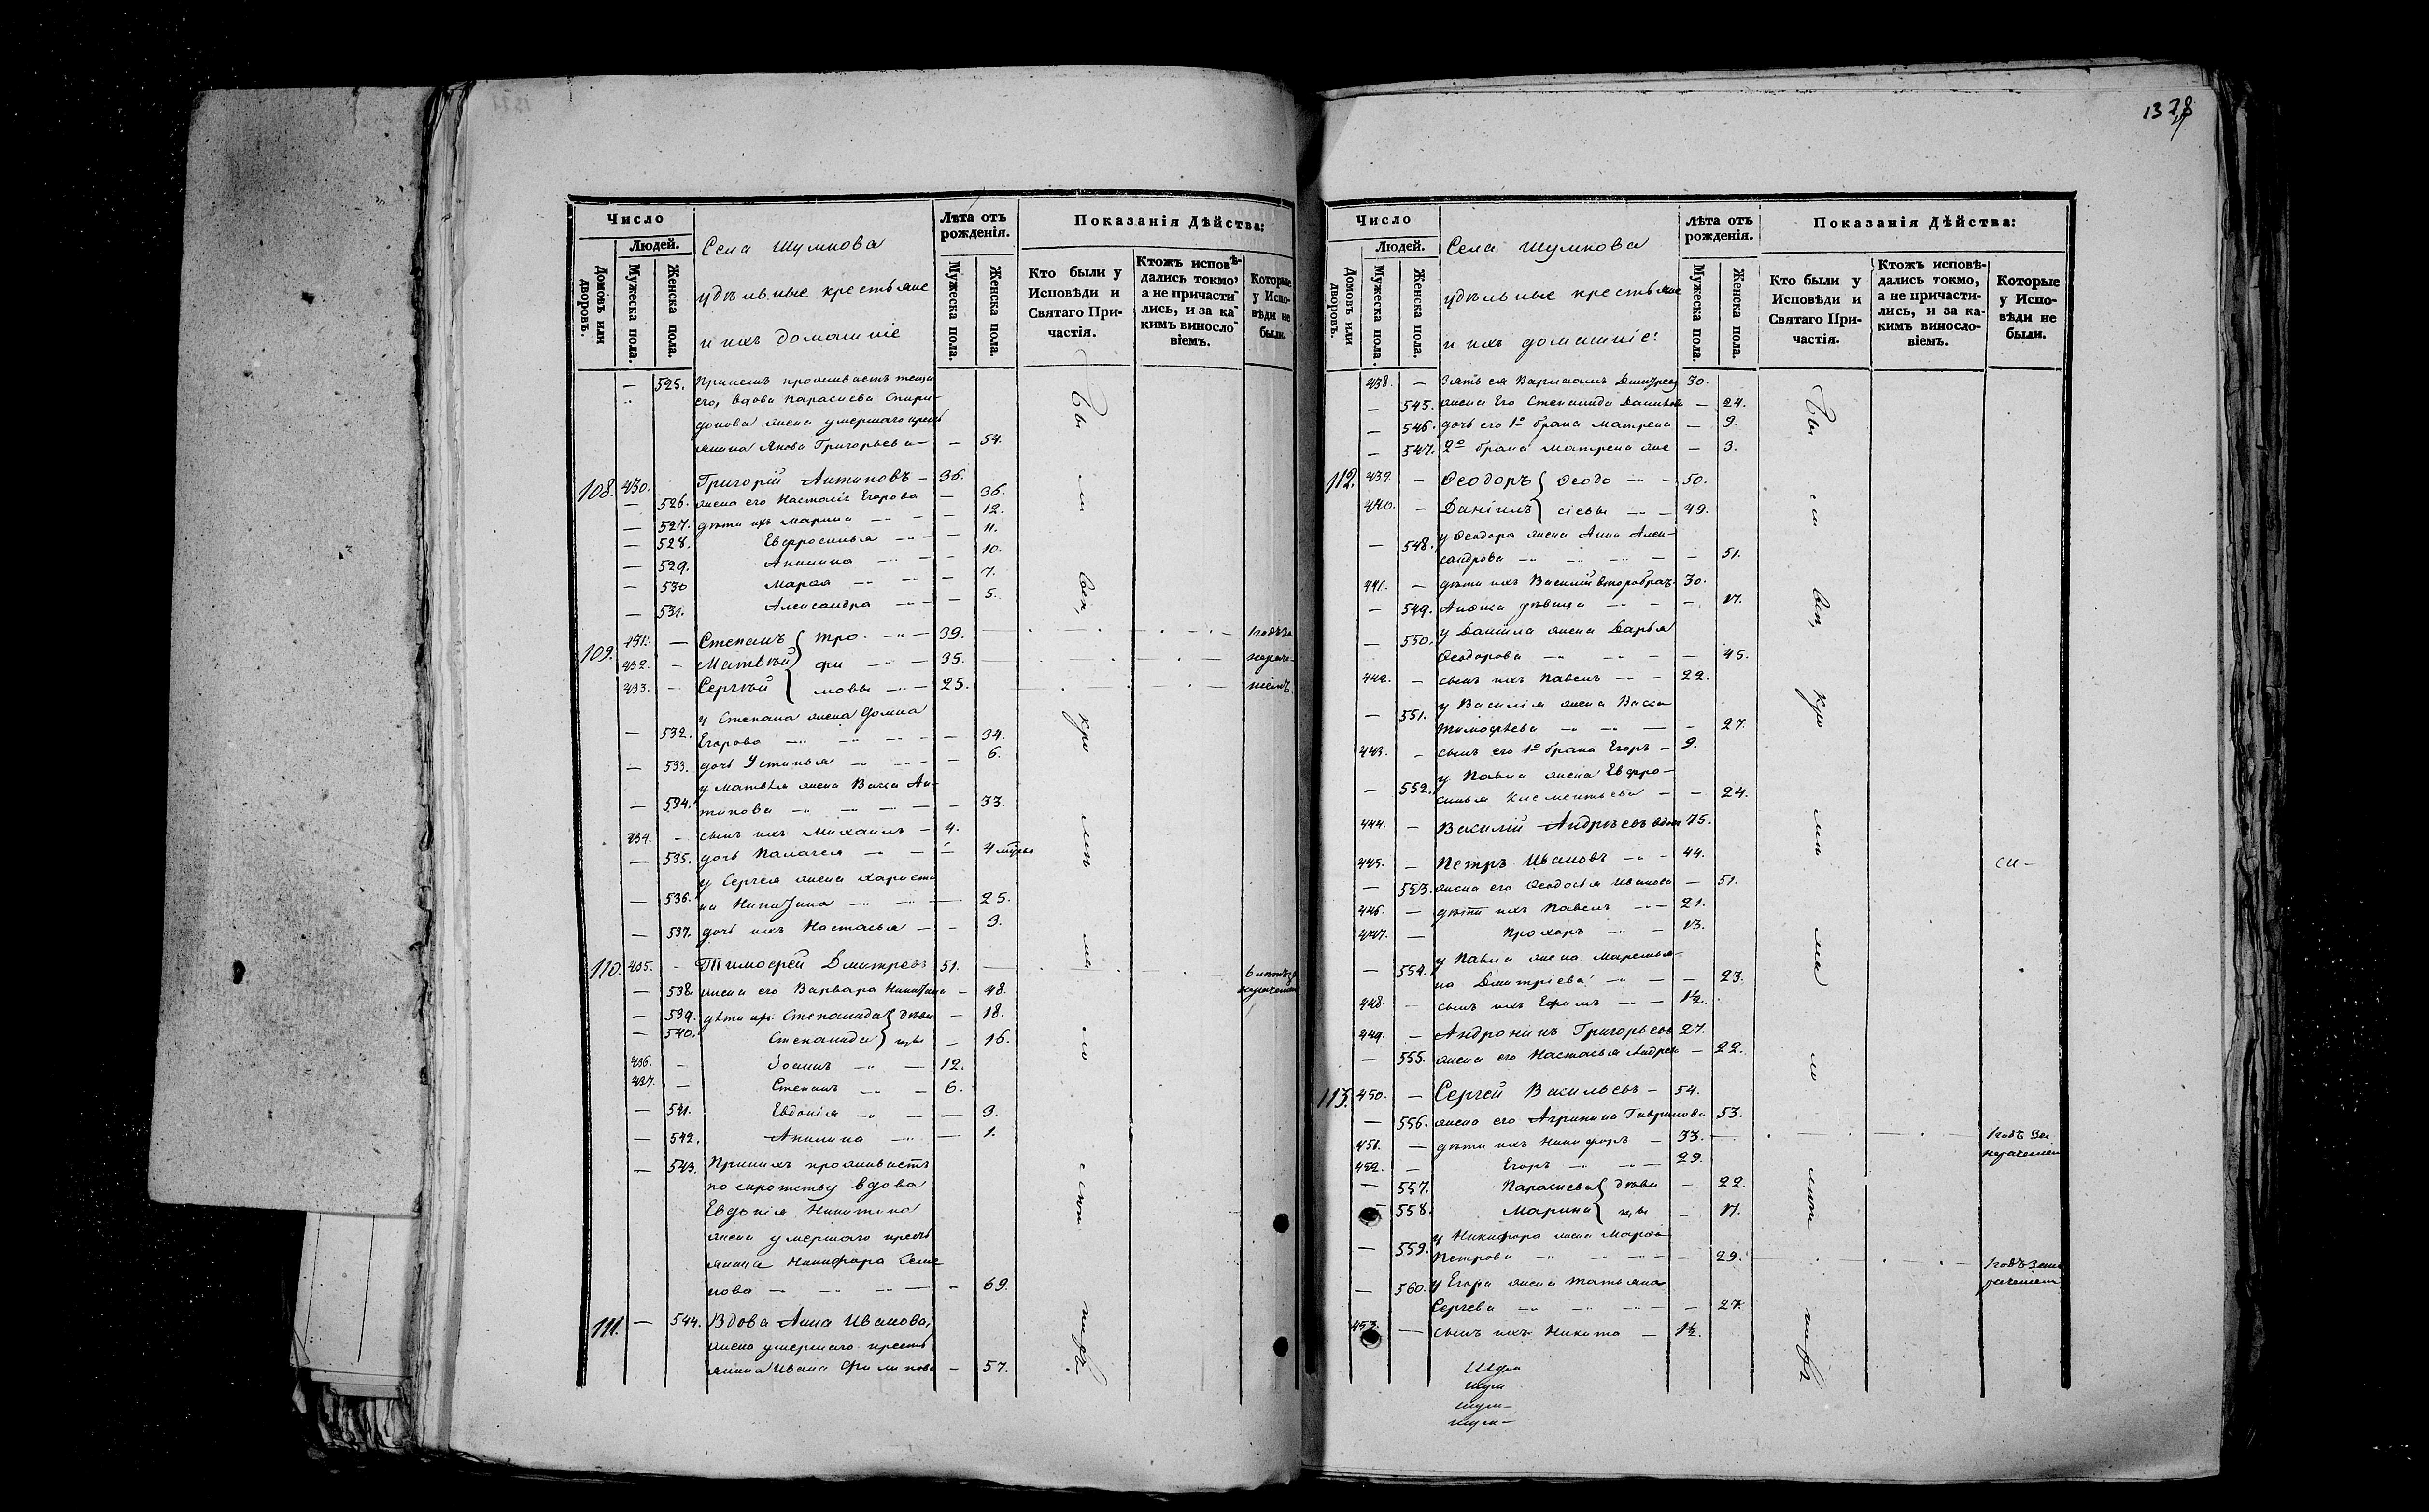 1328
Число
Людей.
Домовъ или дворовъ.
Мужеска пола.
Женска пола.
Села Шумкова
удѣльные крестьяне
и ихъ домашніе
Лѣта отъ рожденія.
Мужеска пола.
Женска пола.
Показанія Дѣйства:
Кто были у Исповѣди и Святаго Причастія.
Ктожъ исповѣдались токмо, а не причастились, и за какимъ винословіемъ.
Которые у Исповѣди не были.
— 525. При немъ проживаетъ теща
его, вдова Параскева Спири-
донова жена умершаго крест
янина Якова Григорьева — — 54.
108. 430. Григорій Антиповъ — 36.
— 526. жена его Настасія Егорова — 36.
— 527. дѣти ихъ Марина — 12.
— 528. Евфросинья — 11.
— 529. Акилина — 10.
— 530 Марѳа — 7.
— 531. Александра — 5.
109. 431. — Степанъ } Тро — 39. 1 годъ за
432. — Матвѣй } фи — 35. нераче-
433. — Сергѣй } мовы — 25. ніемъ.
у Степана жена Домна
— 532. Егорова — 34.
— 533. дочь Устинья — 6.
у Матвѣя жена Васса Ан-
— 534. типова — 33.
434. — сынъ ихъ Михаилъ — 4.
— 535. дочь Палагея — 4
у Сергея жена Харити
— 536. на Никитина — 25.
— 537. дочь ихъ Настасья — 3.
110. 435. — Тимоѳей Дмитревъ 51. 6 лѣтъ за
— 538. жена его Варвара Никитина — 48. нераченіемъ
— 539. дѣти их: Степанида } дѣви — 18.
— 540. Степанида } цы — 16.
436. — Іоаннъ — 12.
437. — Степанъ — 6.
— 541. Евдокія — 3.
— 542. Акилина — 1.
— 543. При нихъ проживаетъ
по сиротству вдова
Евдокія Никитина
жена умершаго кресть
янина Никифора Семе
нова — 69.
111. — 544. Вдова Анна Иванова,
жена умершаго кресть
янина Ивана Филипова — 57.
Число
Людей.
Домовъ или дворовъ.
Мужеска пола.
Женска пола.
Села Шумкова
удѣльные крестьяне
и ихъ домашніе:
Лѣта отъ рожденія.
Мужеска пола.
Женска пола.
Показанія Дѣйства:
Кто были у Исповѣди и Святаго Причастія.
Ктожъ исповѣдались токмо, а не причастились, и за какимъ винословіемъ.
Которые у Исповѣди не были.
438. — Зять ея Варлаамъ 30.
— 545. жена Его Степанида — 24.
— 546. дочь его 1го брака Матрена — 9.
— 547. 2го брака Матрена же — 3.
112. 439. — Ѳеодоръ } Ѳеодо — 50.
440. — Даніилъ } сіевы — 49.
у Ѳеодора жена Анна Алек-
— 548. сандрова — 51.
441. — дѣти ихъ Василій второбрач. 30.
— 549. дѣвица — 17.
у Данила жена Дарья
— 550. Ѳеодорова — 45.
442. — сынъ ихъ Павелъ — 22.
у Василія жена Васса
— 551. Тимоѳѣева — 27.
443. — сынъ его 1го брака Егоръ — 9.
у Павла жена Евфро-
— 552. синья Клементьева — 24.
444. — Василій Андрѣевъ вдов 75.
445. — Петръ Ивановъ — 44.
— 553. жена его Ѳеодосья Иванова — 51.
446. — дѣти ихъ Павелъ — 21.
447. — Прохоръ — 13.
у Павла жена Маремья-
— 554. на Дмитріева — 23.
448. — сынъ ихъ Ефимъ — 1½.
449. — Андроникъ Григорьевъ 27.
— 555. жена его Настасья Андрее — 22.
113. 450. — Сергей Васильевъ — 54.
— 556. жена его Агрипина Гаврилова 53.
451. — дѣти ихъ Никифоръ — 33. 1 годъ за
452. — Егоръ — 29. нераченіем
— 557. Параскева } дѣви — 22.
— 558. Марина } цы — 17.
у Никифора жена Марѳа
— 559. Петрова — 29. 1 годъ за не
— 560. у Егора жена Татьяна раченіем
Сергѣева — 27.
453. — сынъ ихъ Никита — 1½.